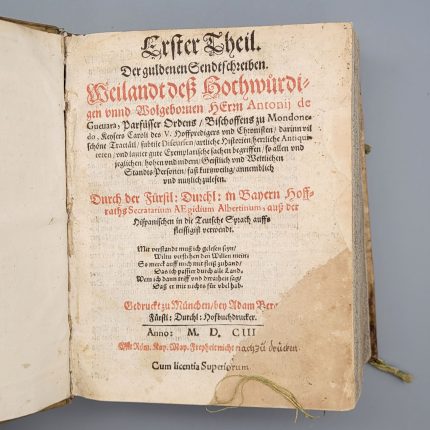 Erster Theil.
Der guldenen Sendtschreiben.
Weilandt deß Hochwürdi-
gen vnnd Wolgebornen HErrn Antonij de
Gueuara, Parfüsser Ordens / Bischoffens zu Mondone-
do, Keysers Caroli des V. Hoffpredigers vnd Chronisten / darinn vil
schöne Tractätl / subtile Discursen / artliche Historien / herrliche Antiqui-
teten / vnd lauter gute Exemplarische sachen begriffen / so allen vnd
jeglichen / hohen vnd nidern / Geistlich vnd Weltlichen
Standts Personen / fast kurtzweilig / annemblich
vnd nutzlich zulesen.
Durch der Fürstl: Durchl: in Bayern Hoff-
raths Secretarium AEgidium Albertinum, auß der
Hispanischen in die Teutsche Sprach auffs
fleissigist verwendt.
Mit verstandt muß ich gelesen seyn /
Wiltu verstehen den Willen mein:
So merck auff mich mit fleiß zuhand /
Dan ich passier durch alle Land.
Wem ich dann triff vnd die warheit sag /
Daß er mir nichts für vbel hab.
Gedruckt zu München / bey Adam Ber-
Fürstl: Durchl: Hofbuchdrucker.
Anno: M. D. CIII
Röm. Kay. May. Freyheit nicht nach zu drucken.
Cum licentia Superiorum.